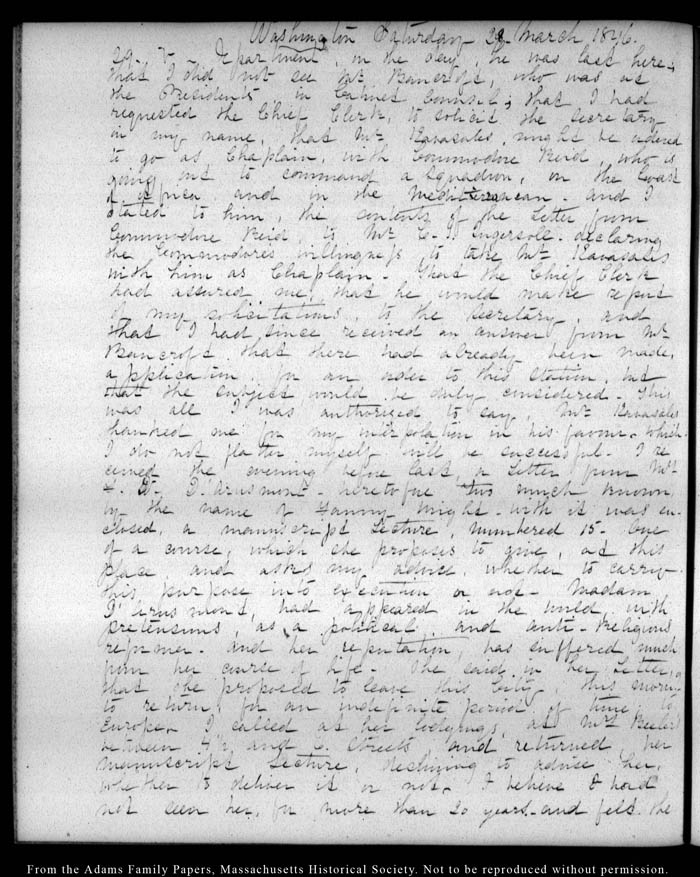 Washington Saturday 28 March 1846.
29. V. Department, on the day, he was last here;
that I did not see Mr Bancroft, who was at
the Presidents in Cabinet Council; that I had
requested the Chief Clerk, to solicit the Secretary
in my name, that Mr Kavasales might be ordered
to go as Chaplain, with Commodore Reid, who is
going out to command a Squadron, on the Coast
of Africa and in the Mediterranean - and I
stated to him, the contents of the Letter from
Commodore Reid, to Mr C. J. Ingersoll - declaring
the Commodores willingness, to take Mr Kavasales
with him as Chaplain - That the Chief Clerk
had assured me, that he would make report
of my solicitations, to the Secretary, and
that I had since received an answer from Mr
Bancroft that there had already been made,
application for an order to this station, but
that the subject would be duly considered. This
was all I was authorised to say, Mr Kavasales
thanked me for my interpolation in his favour, which
I do not flatter myself will be successful - I re
ceived the evening before last, a Letter from Mrs
F. W. D'Arusmont - heretofore too much known
by the name of Fanny Wright - with it was en-
closed, a manuscript Lecture, numbered 15 - One
of a course, which she proposes to give, at this
place and asks my advice, whether to carry
this purpose into execution or not - Madam
D'Arusmont, had appeared in the world, with
pretensions, as a political and anti-Religious
reformer - and her reputation, has suffered much
from her course of life - She said in her Letter,
that she proposed to leave this City, this morng
to return, for an indefinite period of time, to
Europe. I called at her lodgings, at Mrs
between 4½ and C. Streets and returned, her
manuscript Lecture, declining to advise her,
whether to deliver it or not. I believe I had
not seen her, for more than 20 years - and felt the
From the Adams Family Papers, Massachusetts Historical Society. Not to be reproduced without permission.